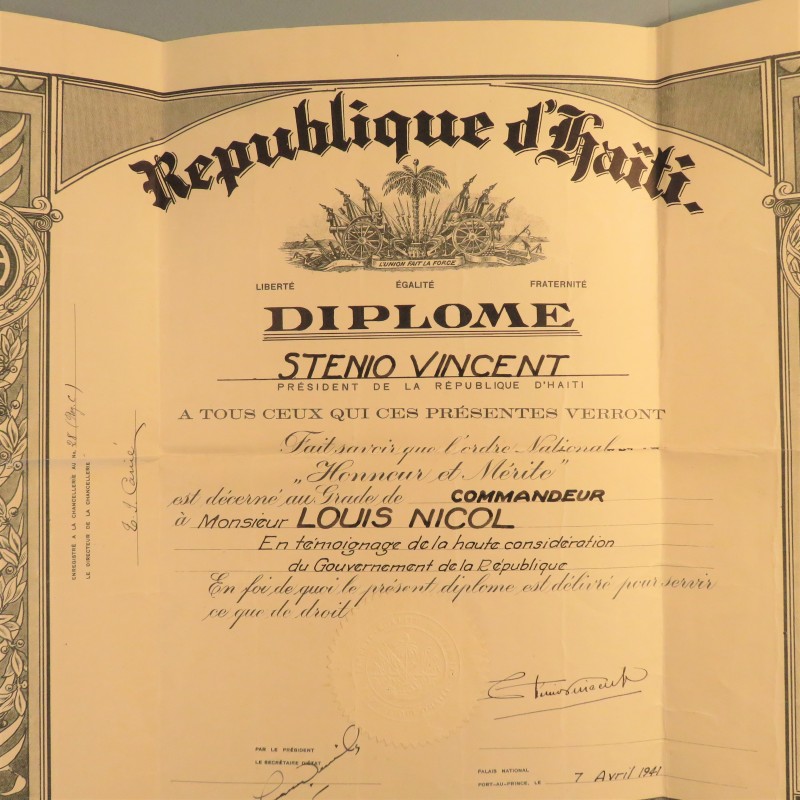 Republique d'Haïti.
L'UNION FAIT LA FORCE
LIBERTÉ ÉGALITÉ FRATERNITÉ
DIPLOME
STENIO VINCENT
PRÉSIDENT DE LA RÉPUBLIQUE D'HAITI
A TOUS CEUX QUI CES PRÉSENTES VERRONT
Fait savoir que l'ordre National
„Honneur et Mérite"
est décerné au Grade de COMMANDEUR
à Monsieur LOUIS NICOL
En témoignage de la haute considération
du Gouvernement de la République
En foi de quoi le présent diplome est délivré pour servir
ce que de droit
ENREGISTRÉ A LA CHANCELLERIE AU No. 28
LE DIRECTEUR DE LA CHANCELLERIE
PAR LE PRÉSIDENT
LE SECRÉTAIRE D'ÉTAT
PALAIS NATIONAL
PORT-AU-PRINCE, LE 7 Avril 1941